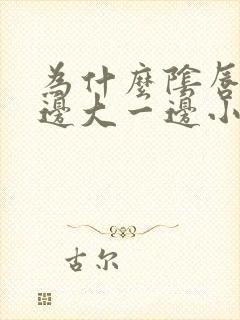 為什麼陰唇
邊大一邊小
古尔